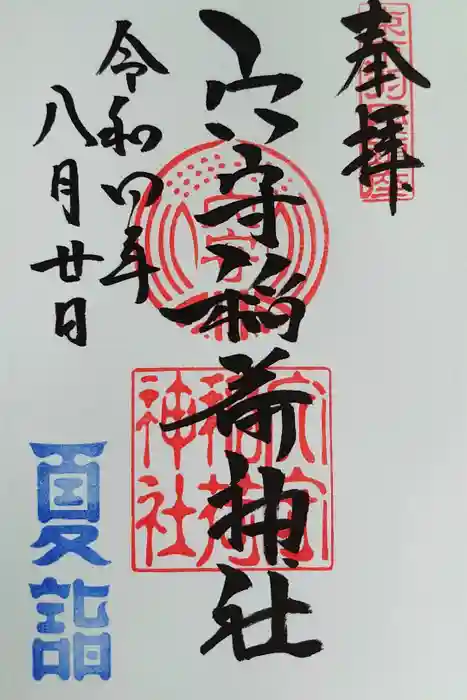 奉拝
穴守稲荷神社
令和四年
八月廿日
夏詣
穴守
稲荷
神社